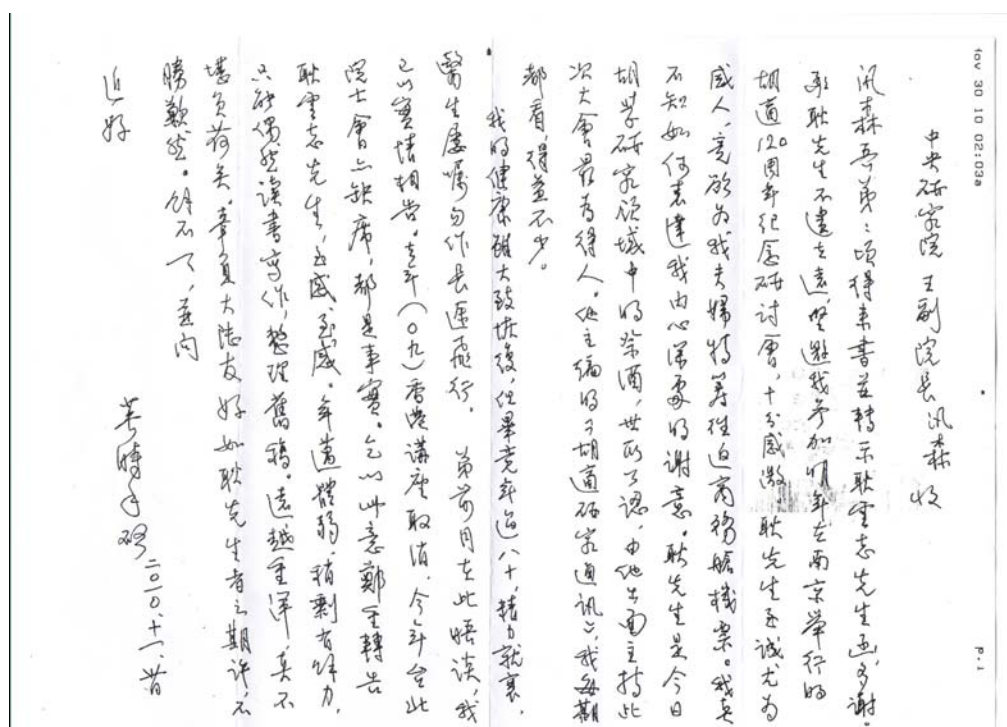 Nov 30 10 02:03a
p.1
中央研究院王副院長汎森收
汎森吾弟：頃得来書並轉示耿雲志先生函，多謝。
耿先生不遺在遠，堅邀我参加明年在南京舉行的
胡適120周年紀念研讨會，十分感激。耿先生至誠尤为
感人，竟欲为我夫婦特籌往返商務艙機票。我真
不知如何表達我内心深處的謝意。耿先生是今日
胡学研究领域中的祭酒，世所公認，由他出面主持此
次大會最为得人。他主编的《胡適研究通訊》，我每期
都看，得益不少。
我的健康雖大致恢復，但畢竟年逾八十，精力就衰，
醫生屢囑勿作長途飛行。弟前月在此晤谈，我
已以實情相告。去年（〇九）香港講座取消，今年台北
院士會亦缺席，都是事實。乞以此意鄭重轉告
耿雲志先生，至感至感。年邁體弱，稍剩有餘力，
只能偶然读書寫作，整理舊稿。遠越重洋，真不
堪負荷矣。辜負大陸友好如耿先生者之期许，不
勝歉然。餘不一一，並问
近好
英時手啓
二〇一〇、十一、廿